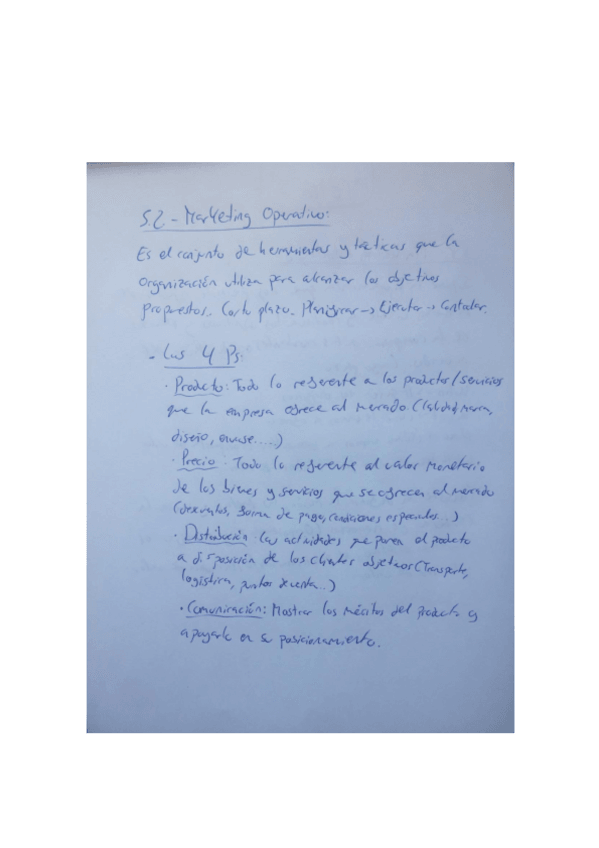 5.2 - Marketing Operativo:
Es el conjunto de herramientas y tácticas que la
Organización utiliza para alcanzar los objetivos
Propuestos. Corto plazo. Planificar -> Ejecutar -> Controlar.
- Las 4 Ps:
· Producto: Todo lo referente a los productos/servicios
que la empresa ofrece al mercado (Calidad, Marca,
diseño, envase.....)
· Precio: Todo lo referente al valor monetario
de los bienes y servicios que se ofrecen al mercado
(descuentos, forma de pago, condiciones especiales...)
· Distribución: Las actividades que ponen el producto
a disposición de los clientes objetivos (Transporte,
logística, puntos de venta..)
· Comunicación: Mostrar los méritos del producto y
apoyarle en su posicionamiento.